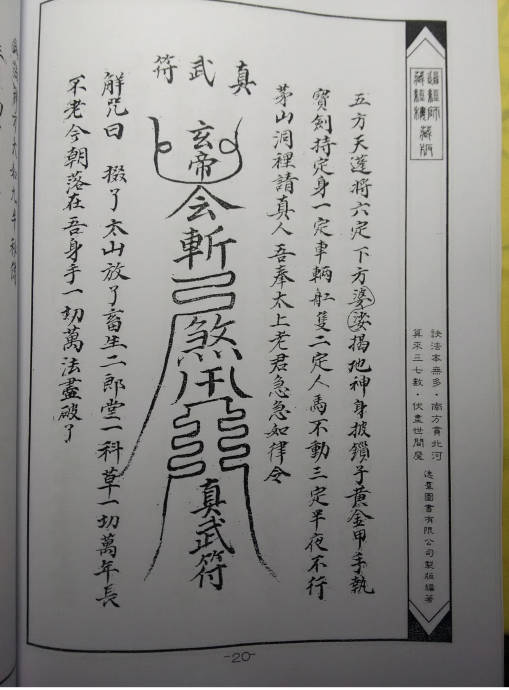 訣法本無多·南方貫北河
算來三七數·伏盡世間魔
圖書有限公司製版編著
五方天蓬將六定下方婆娑揭地神身披鎖子黃金甲手執
寶劍持定身一定車輛舡隻二定人馬不動三定半夜不行
茅山洞裡請真人吾奉太上老君急急如律令
真武符
玄帝
令斬
煞
真武符
解咒曰 了太山放了畜生二郎堂一科草一切萬年長
不老今朝落在吾身手一切萬法盡破了
-20-